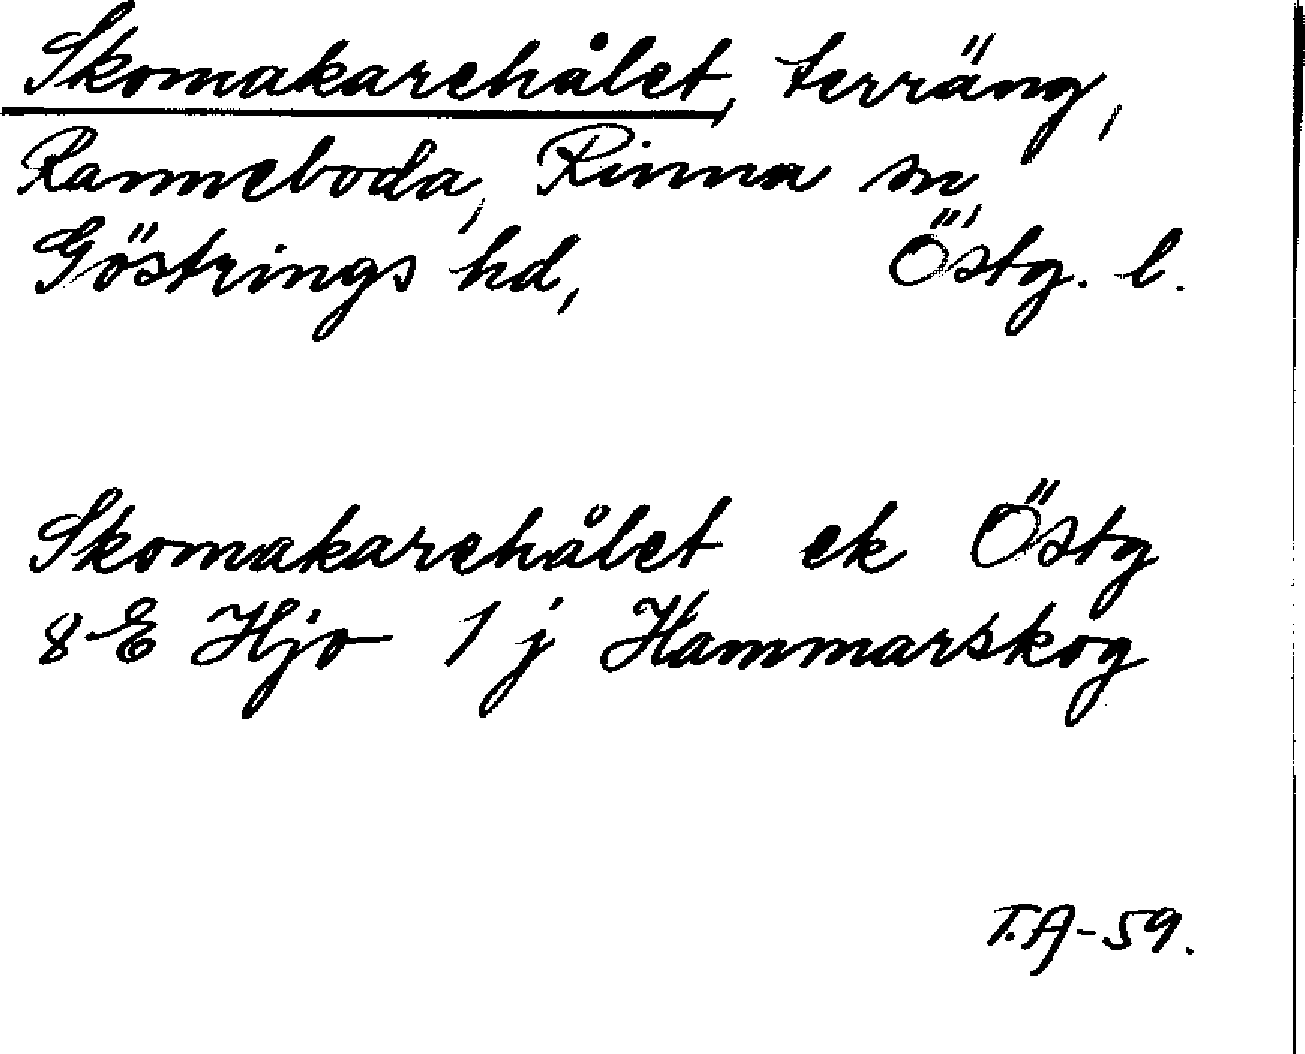 Skomakarehålet, terräng,
Ranneboda, Rinna sn,
Göstrings hd, Östg. l.
Skomakarehålet ek Östg
8 E Hjo 1 j Hammarskog
T.A-59.